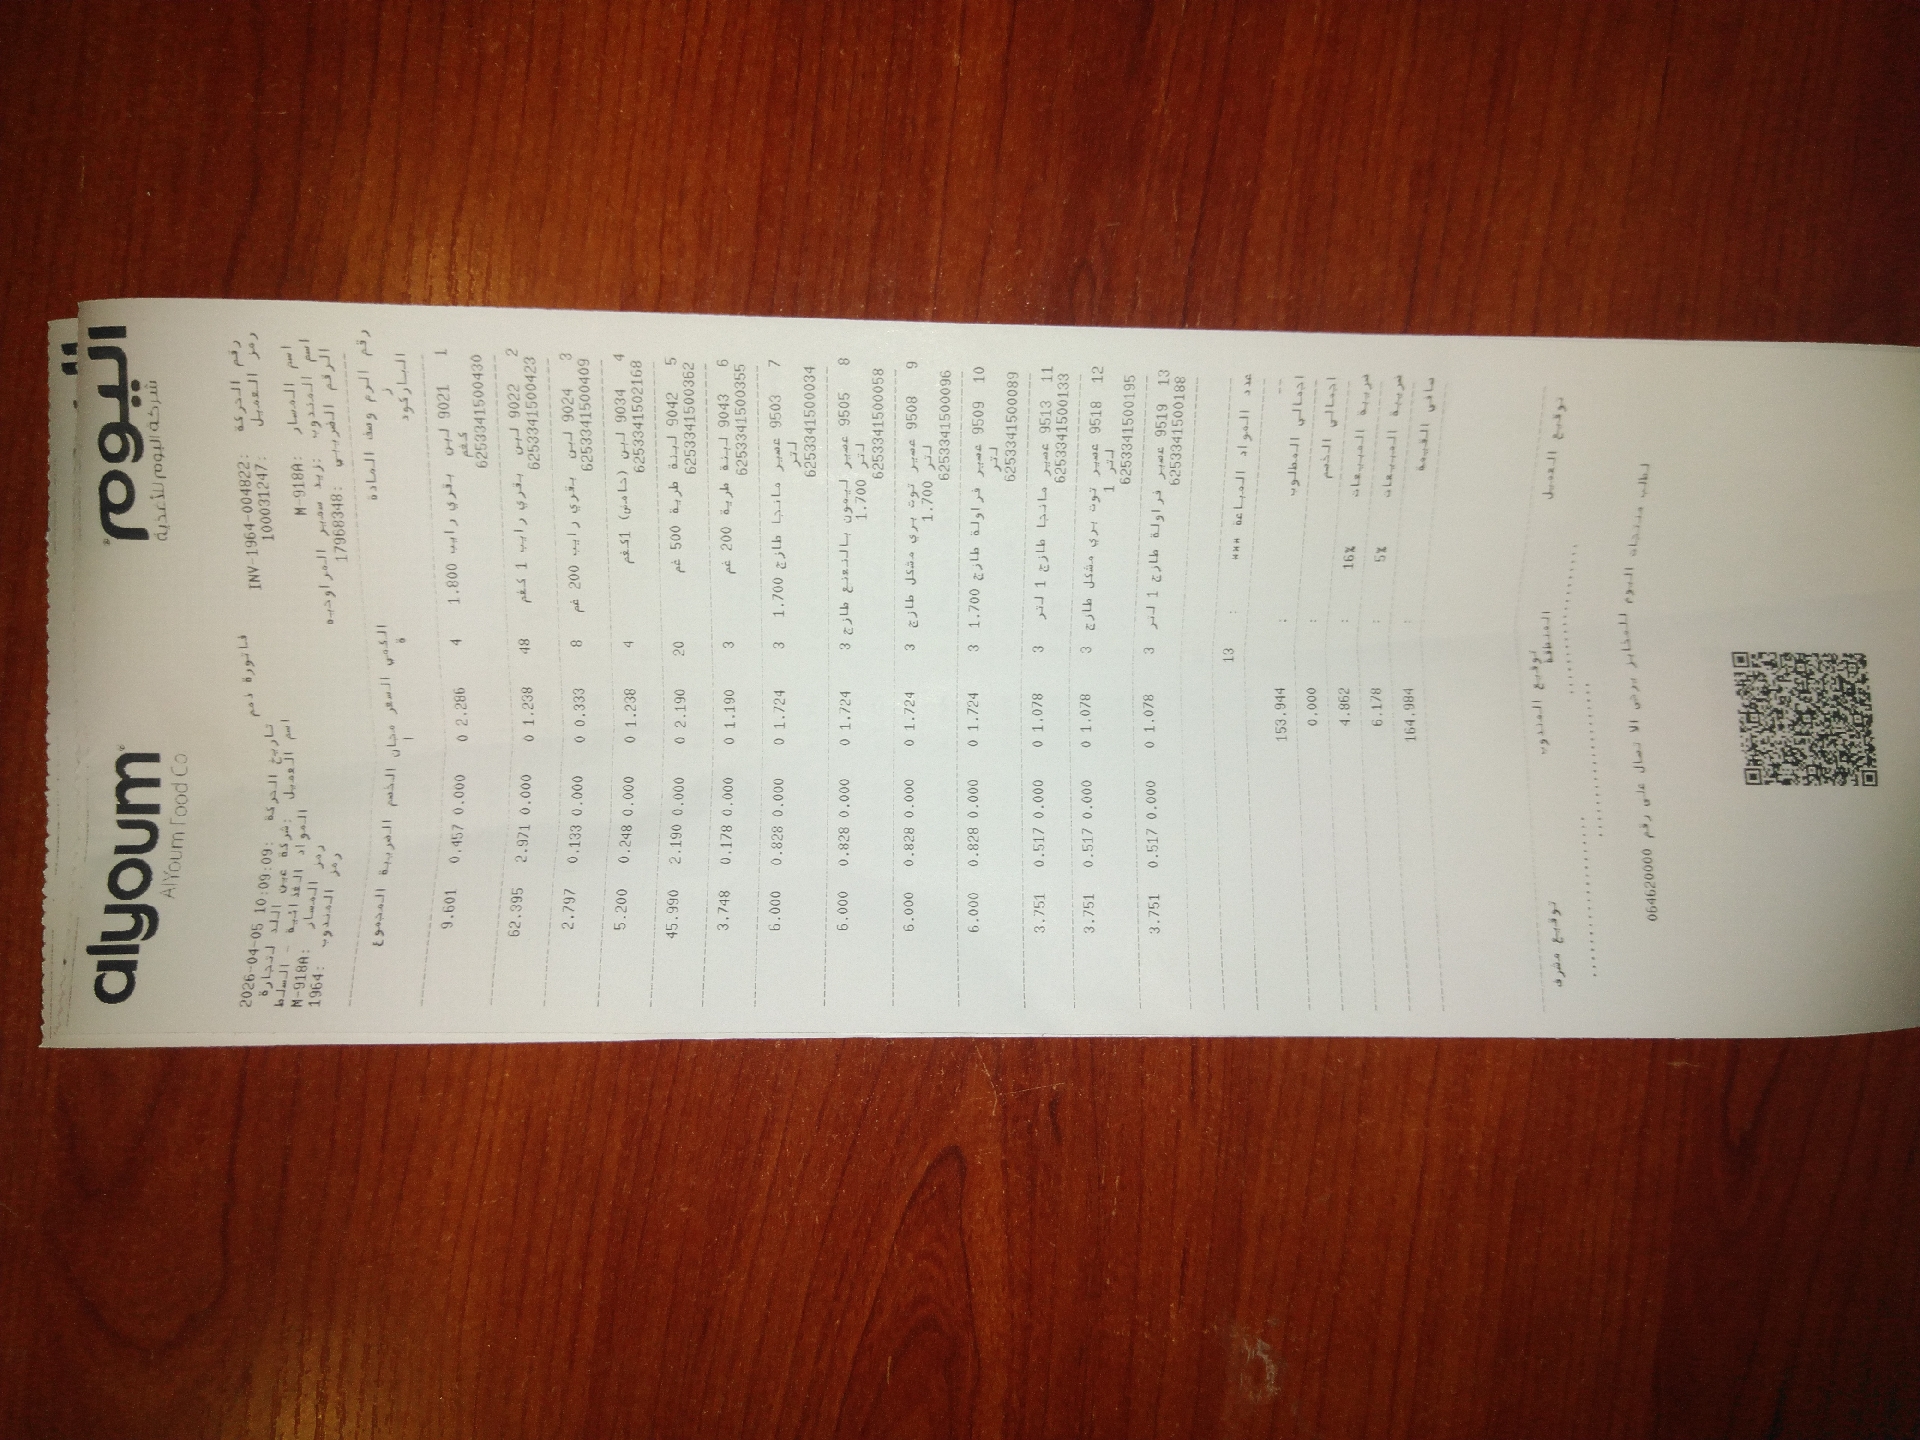 alyoum اليوم
AlYoum Food Co شركة اليوم للأغذية
فاتورة ذمم
رقم الحركة :INV-1964-004822 تاريخ الحركة :2026-04-05 10:09:09
رمز العميل :100031247 اسم العميل :شركة عين اللد لتجارة
المواد الغذائية - السلط
اسم المسار :M-918A رمز المسار :M-918A
اسم المندوب :زيد سمير المراوديه رمز المندوب :1964
الرقم الضريبي :17968348
رقم الرم وصف المادة الكمي السعر مجان الخصم الضريبة المجموع
ز ة ا
الباركود
1 9021 لبن بقري رايب 1.800 4 2.286 0 0.000 0.457 9.601
كغم
6253341500430
2 9022 لبن بقري رايب 1 كغم 48 1.238 0 0.000 2.971 62.395
6253341500423
3 9024 لبن بقري رايب 200 غم 8 0.333 0 0.000 0.133 2.797
6253341500409
4 9034 لبن (خامض) 1كغم 4 1.238 0 0.000 0.248 5.200
6253341502168
5 9042 لبنة طرية 500 غم 20 2.190 0 0.000 2.190 45.990
6253341500362
6 9043 لبنة طرية 200 غم 3 1.190 0 0.000 0.178 3.748
6253341500355
7 9503 عصير مانجا طازج 1.700 3 1.724 0 0.000 0.828 6.000
لتر
6253341500034
8 9505 عصير ليمون بالنعنع طازج 3 1.724 0 0.000 0.828 6.000
1.700 لتر
6253341500058
9 9508 عصير توت بري مشكل طازج 3 1.724 0 0.000 0.828 6.000
1.700 لتر
6253341500096
10 9509 عصير فراولة طازج 1.700 3 1.724 0 0.000 0.828 6.000
لتر
6253341500089
11 9513 عصير مانجا طازج 1 لتر 3 1.078 0 0.000 0.517 3.751
6253341500133
12 9518 عصير توت بري مشكل طازج 3 1.078 0 0.000 0.517 3.751
1 لتر
6253341500195
13 9519 عصير فراولة طازج 1 لتر 3 1.078 0 0.000 0.517 3.751
6253341500188
عدد المواد المباعة *** : 13
اجمالي المطلوب : 153.944
اجمالي الخصم : 0.000
ضريبة المبيعات 16% : 4.862
ضريبة المبيعات 5% : 6.178
صافي القيمة : 164.984
توقيع العميل توقيع المندوب توقيع مشرف
المنطقة
لطلب منتجات اليوم للمخابز يرجى الاتصال على رقم 064620000